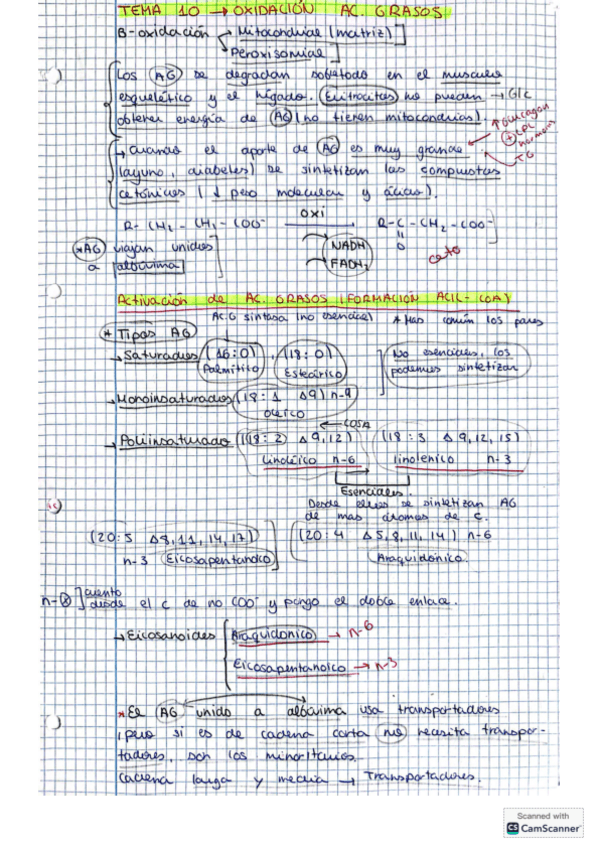 TEMA 10 → OXIDACIÓN AC. GRASOS
B-oxidación → Mitocondrial (matriz)
→ Peroxisomial
Los AG se degradan sobretodo en el musculo
esquelético y el hígado. Eritrocitos no pueden → Glc
obtener energía de AG (no tienen mitocondrias).
↑ Glucagon
⊕ LPL
hormona
TG
→ Cuando el aporte de AG es muy grande
(ayuno, diabetes) se sintetizan los compuestos
cetónicos (↓ peso molecular y ácidos).
R-CH2-CH2-COO⁻ oxi → R-C-CH2-COO⁻
O
NADH
FADH2
ceto
*AG viajan unidos
a albúmina
Activación de AC. GRASOS (FORMACIÓN ACIL-COA)
AC.G sintasa (no esencial) * Mas común los pares
* Tipos AG
→ Saturados (16:0), (18:0)
Palmítico Esteárico
No esenciales, los
podemos sintetizar
→ Monoinsaturados (18:1 Δ9) n-9
oleico
← COSA
→ Poliinsaturado (18:2 Δ9,12) (18:3 Δ9,12,15)
linoléico n-6 linolenico n-3
Esenciales.
Desde ellos se sintetizan AG
de mas átomos de C.
(20:5 Δ8,11,14,17) (20:4 Δ5,8,11,14) n-6
n-3 Eicosapentanoico Araquidónico.
n-ⓧ cuento
desde el C de no COO⁻ y pongo el doble enlace.
→ Eicosanoides Araquidonico → n-6
Eicosapentanoico → n-3
* El AG unido a albúmina usa transportadores
(pero si es de cadena corta no necesita transpor-
tadores, son los minoritarios.
Cadena larga y media → Transportadores.
Scanned with
CS CamScanner